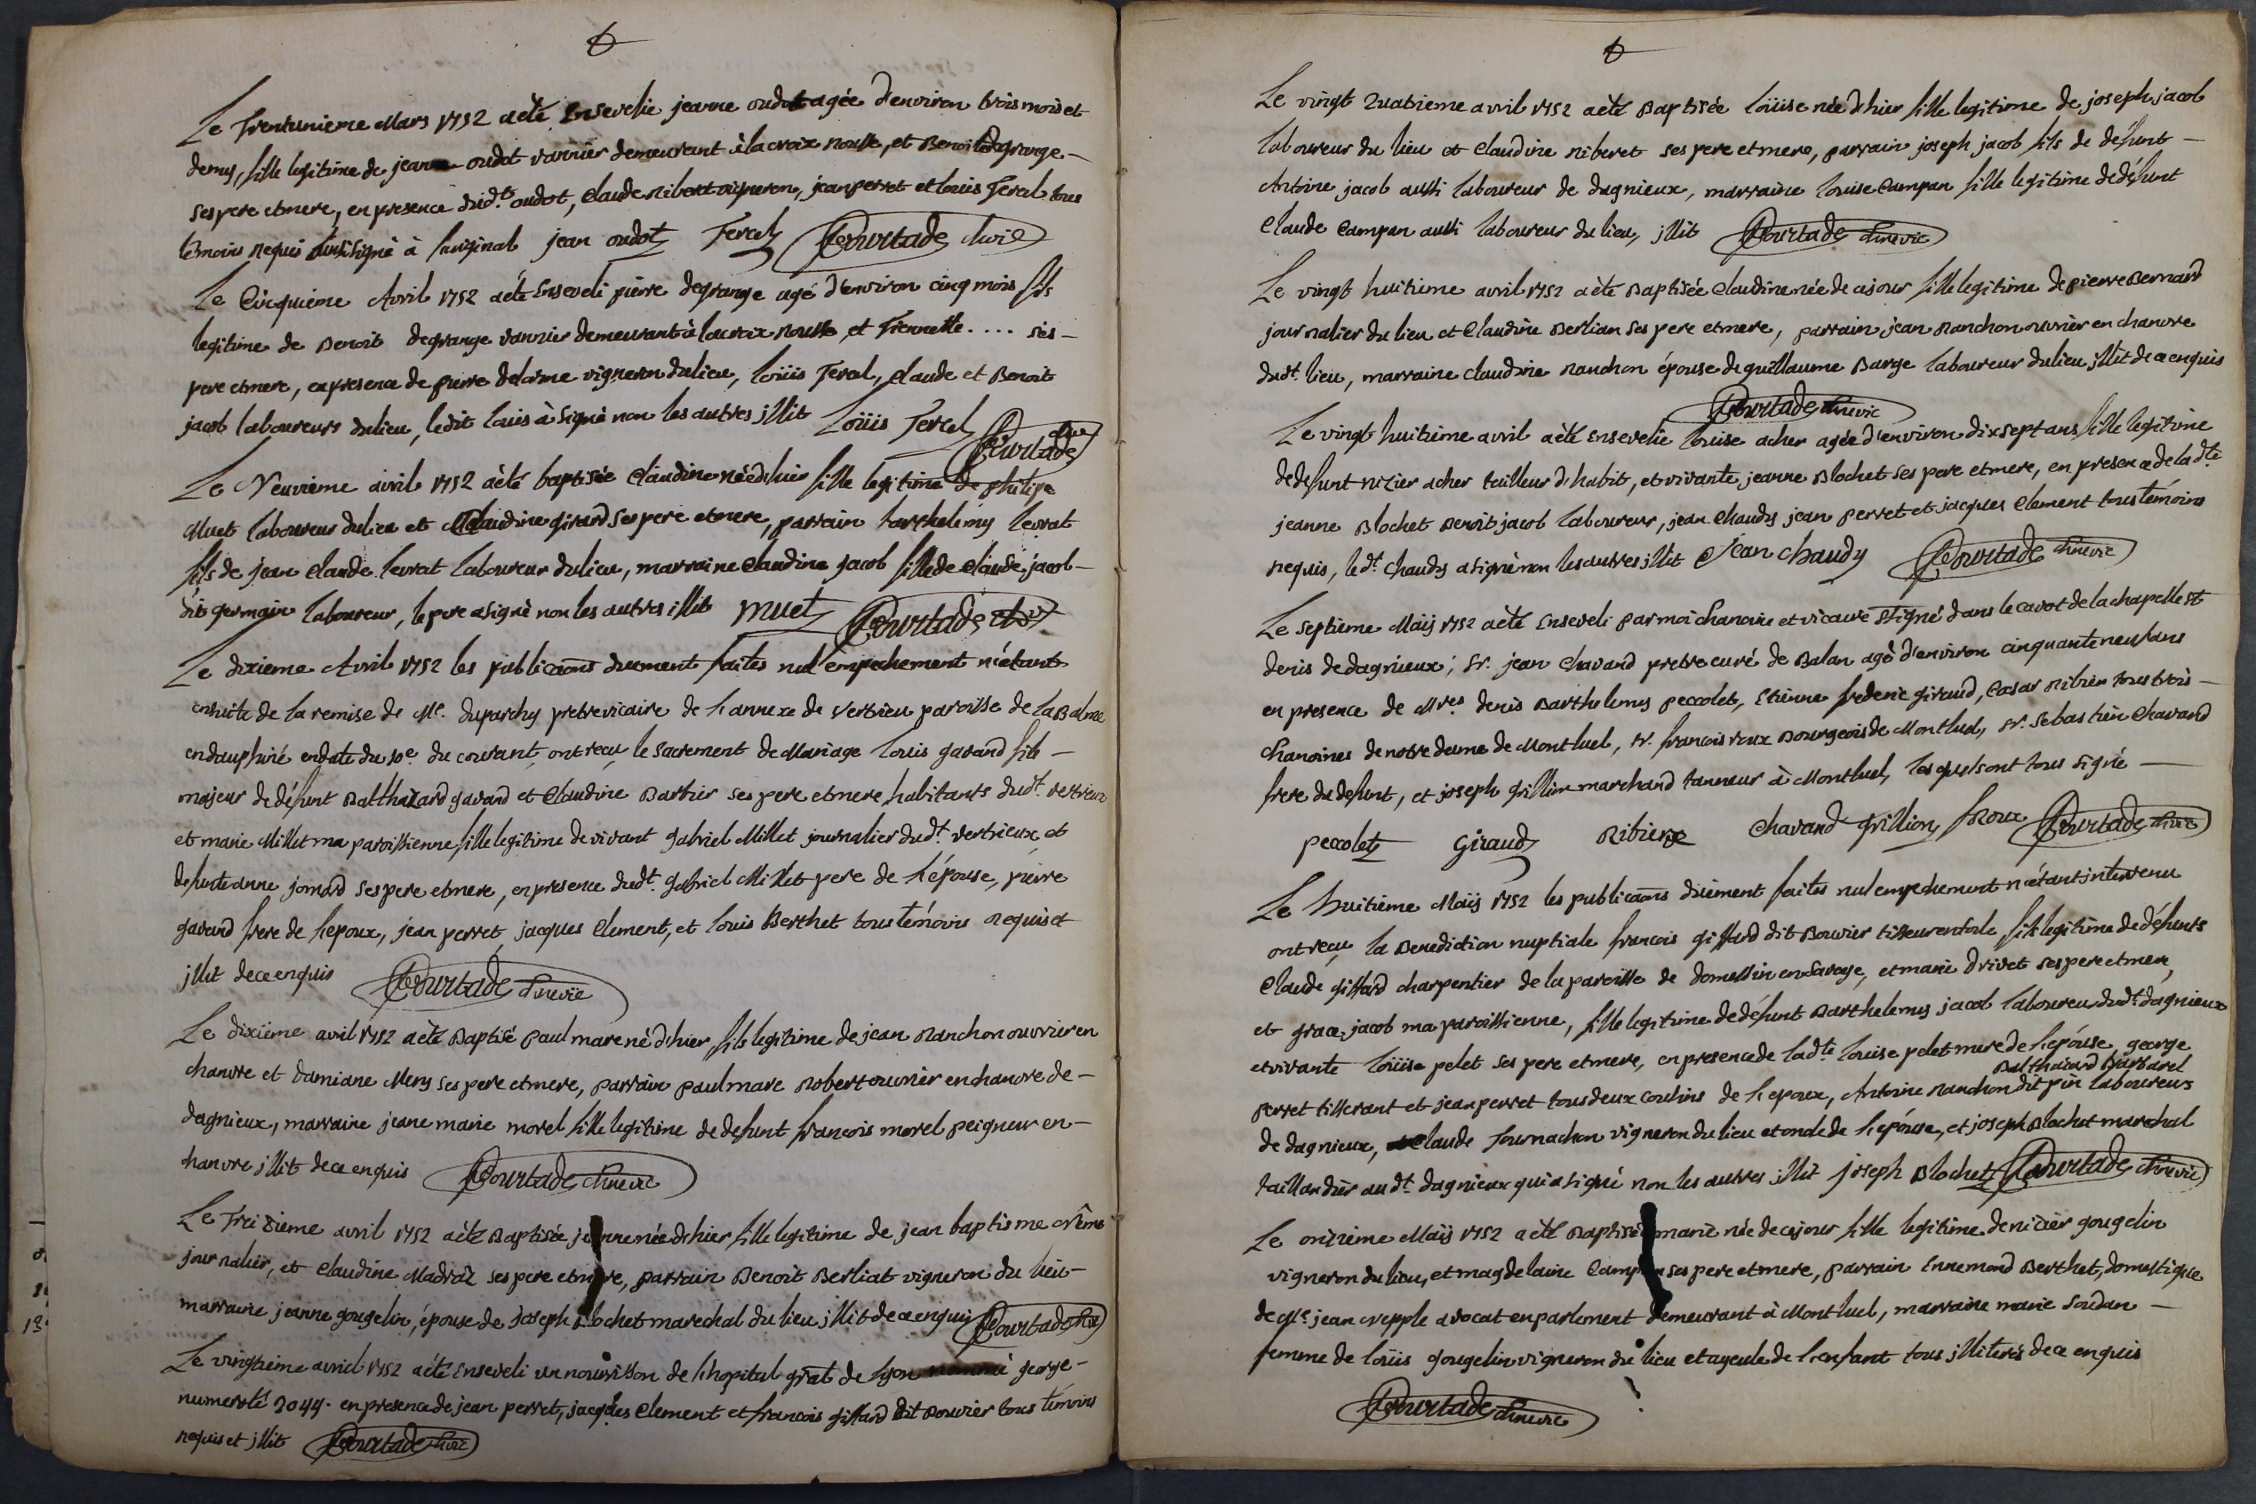 6
Le Trentunieme Mars 1752 aété Ensevelie jeanne oudot agée d'environ trois mois et
demy, fille legitime de jean oudot vannier demeurant à la croix rousse, et Benoite degrange
ses pere et mere, en presence dudt. oudot, Claude niberet vigneron, jean perret et louis Tercel tous
témoins requis à l'original jean oudot Tercel Courtade ch vic
Le Cinquième Avril 1752 aété Enseveli pierre degrange agé d'environ cinq mois fils
legitime de Benoit degrange vannier demeurant à la croix rousse, et Fiennette .... ses
pere et mere, en presence de pierre delorme vigneron du lieu, loüis Tercel, claude et Benoit
jacob laboureurs du lieu, ledit louis à signé non les autres illit Loüis Tercel Courtade chvic
Le Neuvieme avril 1752 aété baptisée Claudine née d'hier fille legitime de philipe
Muet laboureur du lieu et Claudine girard ses pere et mere, parrain barthelemy levrat
fils de jean claude levrat laboureur du lieu, marraine Claudine jacob fille de Claude jacob
dit germain laboureur, le pere a signé non les autres illit muet Courtade chv
Le dixieme Avril 1752 les publicaons duement faites nul empechement n'étant
ensuite de la remise de Me. duparchy pretre vicaire de l'annexe de vertrieu paroisse de la Balme
en dauphiné en date du 10e. du courant, ont reçu le sacrement de Mariage louis gavand fils
majeur de défunt Balthazard gavand et Claudine Barbier ses pere et mere habitants dudt. vertrieux
et marie Millet ma paroissienne, fille legitime de vivant gabriel Millet journalier dudt. vertrieux, et
defunte anne jomard ses pere et mere, en presence dudt. gabriel Millet pere de l'épouse, pierre
gavand frere de l'epoux, jean perret, jacques Clement, et louis Berthet tous témoins requis et
illit de ce enquis Courtade chnevic
Le dixiéme avril 1752 aété Baptisé paul marc né d'hier, fils legitime de jean Ranchon ouvrier en
chanvre et damiane Mery ses pere et mere, parrain paul marc Robert ouvrier en chanvre de
dagnieux, marraine jeane marie morel fille legitime de defunt francois morel peigneur en
chanvre illit de ce enquis Courtade chnevic
Le Treizieme avril 1752 aété Baptisée jeanne née d'hier fille legitime de jean baptisme
journalier, et Claudine Madraz ses pere et mere, parrain Benoit Berliat vigneron du lieu
marraine jeanne gougelin, épouse de Joseph Blochet marechal du lieu illit de ce enquis Courtade chvic
Le vingtieme avril 1752 aété Enseveli un nourisson de l'hopital gral de lyon nommé george
numeroté 2044. en presence de jean perret, jacques Clement et francois giffard dit Bouvier tous témoins
requis et illit Courtade chvic
6
Le vingt quatrieme avril 1752 aété Baptisée loüise née d'hier fille legitime de joseph jacob
laboureur du lieu et Claudine niberet ses pere et mere, parrain joseph jacob fils de defunt
Antoine jacob aussi laboureur de dagnieux, marraine louise Campan fille legitime de défunt
Claude Campan aussi laboureur du lieu, illit Courtade chnevic
Le vingt huitieme avril 1752 aété Baptisée Claudine née de ce jour fille legitime de pierre Bernard
journalier du lieu et Claudine Berlian ses pere et mere, parrain jean Ranchon ouvrier en chanvre
dudt. lieu, marraine claudine Ranchon épouse de guillaume Barge laboureur du lieu illit de ce enquis
Courtade chnevic
Le vingt huitieme avril aété Ensevelie louise acher agée d'environ dix sept ans fille legitime
de defunt nizier acher tailleur d'habit, et vivante jeanne Blochet ses pere et mere, en presence de ladte
jeanne Blochet Benoit jacob laboureur, jean Chaudy jean perret et jacques Clement tous témoins
requis, ledt. Chaudy a signé non les autres illit Jean chaudy Courtade chnevic
Le Septieme Maij 1752 aété Enseveli par moi chanoine et vicaire Ssigné dans le cavot de la chapelle st
denis de dagnieux, Sr. jean Chavand pretre curé de Balan agé d'environ cinquante neuf ans
en presence de Mres denis Barthelemy peccolet, Etienne frederic giraud, Cesar Ribier tous trois
Chanoines de notre dame de Montluel, Sr. francois roux Bourgeois de Montluel, Sr. Sebastien Chavand
frere du defunt, et joseph grillion marchand tanneur à Montluel, lesquels ont tous signé
peccolet Giraud Ribiere Chavand grillion fRoux Courtade chvic
Le Huitieme Maij 1752 les publicaons düement faites nul empechement n'étant intervenu
ont reçu la Benediction nuptiale francois giffard dit Bouvier tisseur en toile fils legitime de défunts
Claude giffard charpentier de la paroisse de domessin en Savoye, et marie drivet ses pere et mere,
et grace jacob ma paroissienne, fille legitime de défunt Barthelemy jacob laboureur dudt. dagnieux
et vivante loüise pelet ses pere et mere, en presence de ladte louise pelet mere de l'épouse, george
Balthazard Barbarel
perret tisserant et jean perret tous deux cousins de l'epoux, Antoine Ranchon dit pin laboureurs
de dagnieux, Claude Tournachon vigneron du lieu et oncle de l'épouse, et joseph Blochet marechal
taillandier audt. dagnieux qui a signé non les autres illit joseph Blochet Courtade chnevic
Le onzieme Maij 1752 aété Baptisée marie née de ce jour fille legitime de nizier gougelin
vigneron du lieu, et magdelaine Campan ses pere et mere, parrain Ennemond Berthet, domestique
de Me. jean nepple avocat en parlement demeurant à Montluel, marraine marie Soudan
femme de loüis gougelin vigneron du lieu et ayeule de l'enfant tous illiterés de ce enquis
Courtade chnevic